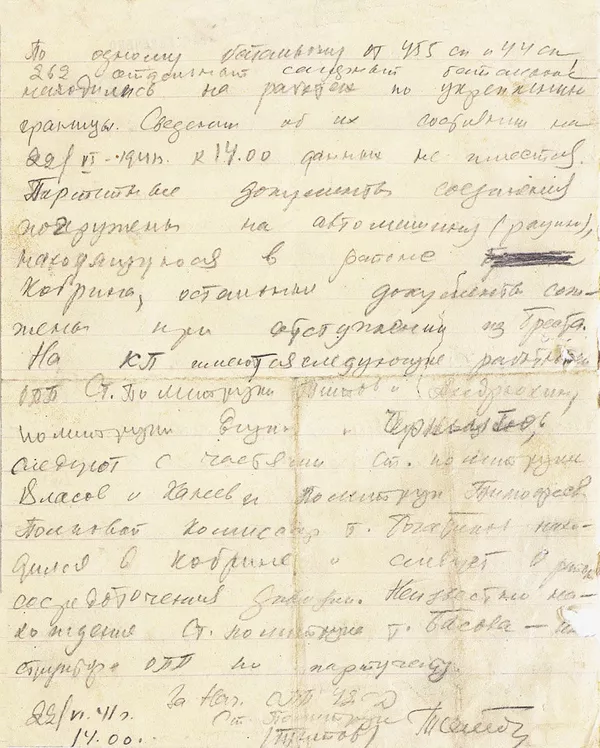 По одному батальону от 455 сп и 44 сп,
262 отдельный саперный батальоне
находились на работах по укреплению
границы. Сведений об их состоянии на
22/VI-1941г. к 14.00 данных не имеется.
Партийные документы соединения
погружены на автомашину (рацию),
находящуюся в районе
Кобрина, остальные документы сож-
жены при отступлении из Бреста.
На КП имеются следующие работники
ОПП Ст. Политруки Титов и
политруки и
следуют с частями Ст. политруки
Власов и и Политрук Тимофеев.
Полковой комиссар т. нахо-
дился в Кобрине и следует в район
сосредоточения Неизвестно на-
хождение Ст. политрука т. Басова – ин-
структора ОПП по партучету.
За Нач. ОПП 42-
22/VI.41г. Ст. Политрук
14.00. (Титов)